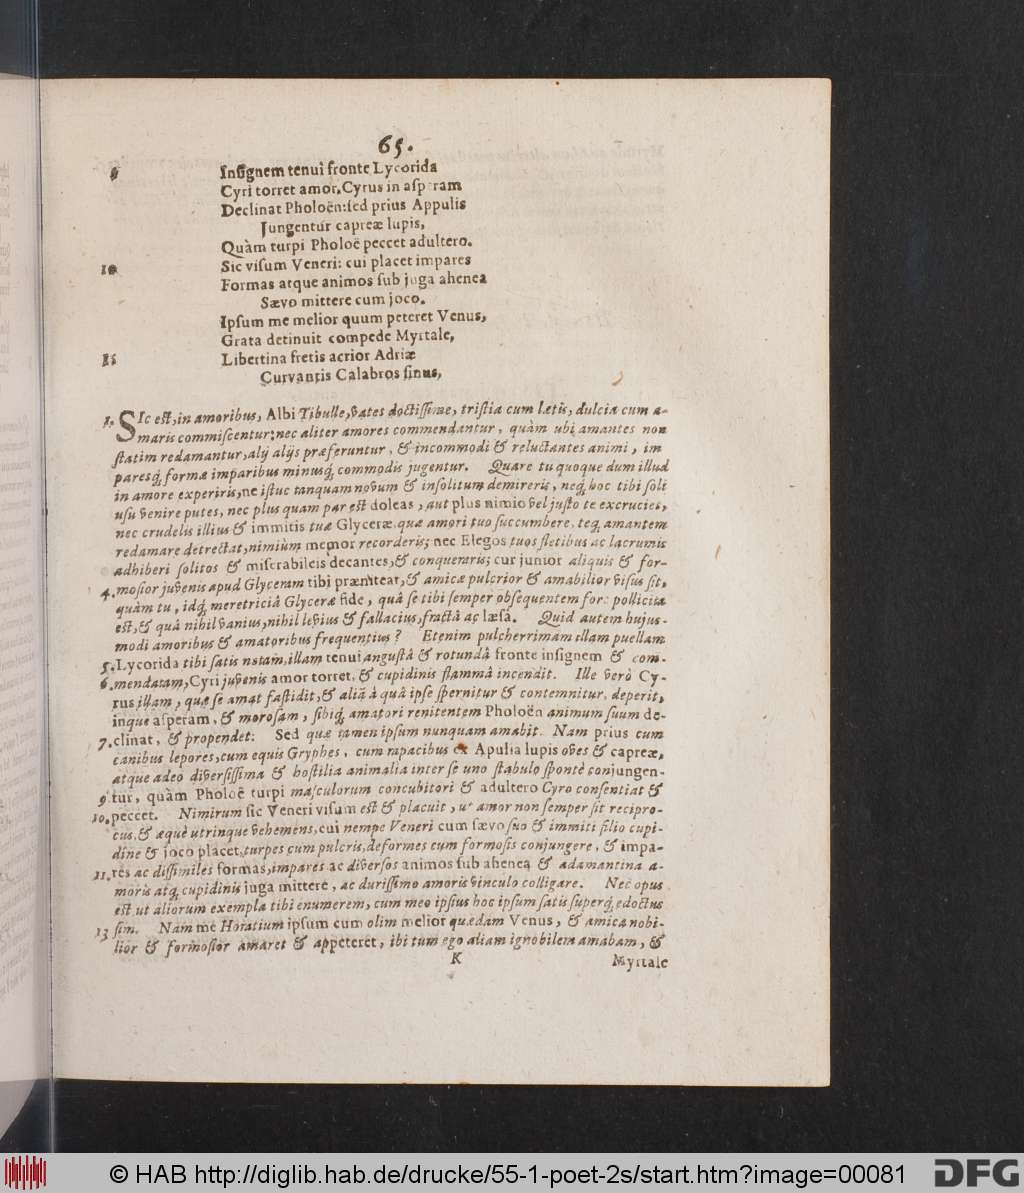 65.
5 Insignem tenui fronte Lycorida
Cyri torret amor, Cyrus in asperam
Declinat Pholoën: sed prius Appulis
Jungentur capreæ lupis,
Quàm turpi Pholoë peccet adultero.
10 Sic visum Veneri: cui placet impares
Formas atque animos sub juga ahenea
Sævo mittere cum joco.
Ipsum me melior quum peteret Venus,
Grata detinuit compede Myrtale,
15 Libertina fretis acrior Adriæ
Curvantis Calabros sinus,
1. SIc est, in amoribus, Albi Tibulle, vates doctissime, tristia cum lætis, dulcia cum a-
maris commiscentur: nec aliter amores commendantur, quàm ubi amantes non
statim redamantur, alij alijs præferuntur, & incommodi & reluctantes animi, im
paresq́; formæ imparibus minusq́; commodis jugentur. Quare tu quoque dum illud
in amore experiris, ne istuc tanquam novum & insolitum demireris, neq́; hoc tibi soli
usu venire putes, nec plus quam par est doleas, aut plus nimio vel justo te excrucies,
nec crudelis illius & immitis tuæ Glyceræ, quæ amori tuo succumbere, teq́; amantem
redamare detrectat, nimiùm memor recorderis; nec Elegos tuos fletibus ac lacrumis
adhiberi solitos & miserabileis decantes, & conqueraris; cur junior aliquis & for-
4. mosior juvenis apud Glyceram tibi præniteat, & amicæ pulcrior & amabilior visus sit,
quàm tu, idq́; meretriciâ Glyceræ fide, quâ se tibi semper obsequentem fore pollicita
est, & quâ nihil vanius, nihil levius & fallacius, fractâ ac læsâ. Quid autem hujus-
modi amoribus & amatoribus frequentius? Etenim pulcherrimam illam puellam
5. Lycorida tibi satis notam, illam tenui angustâ & rotundâ fronte insignem & com-
6. mendatam, Cyri juvenis amor torret, & cupidinis flammâ incendit. Ille verò Cy-
rus illam, quæ se amat fastidit, & aliā à quâ ipse spernitur & contemnitur, deperit,
inque asperam, & morosam, sibiq́; amatori renitentem Pholoën animum suum de-
7. clinat, & propendet: Sed quæ tamen ipsum nunquam amabit. Nam prius cum
canibus lepores, cum equis Gryphes, cum rapacibus ex Apulia lupis oves & capreæ,
atque adeò diversissima & hostilia animalia inter se uno stabulo spontè conjungen-
9. tur, quàm Pholoë turpi masculorum concubitori & adultero Cyro consentiat &
10. peccet. Nimirum sic Veneri visum est & placuit, ut amor non semper sit recipro-
cus, & æquè utrinque vehemens, cui nempe Veneri cum sævo suo & immiti filio cupi-
dine & joco placet, turpes cum pulcris, deformes cum formosis conjungere, & impa-
11. res ac dissimiles formas, impares ac diversos animos sub ahenea & adamantina a-
moris atq́; cupidinis juga mittere, ac durissimo amoris vinculo colligare. Nec opus
est, ut aliorum exempla tibi enumerem, cum meo ipsius hoc ipsum satis superq́; edoctus
13 sim. Nam me Horatium ipsum cum olim melior quædam Venus, & amica nobi-
lior & formosior amaret & appeteret, ibi tum ego aliam ignobilem amabam, &
K Myrtale
© HAB http://diglib.hab.de/drucke/55-1-poet-2s/start.htm?image=00081
DFG